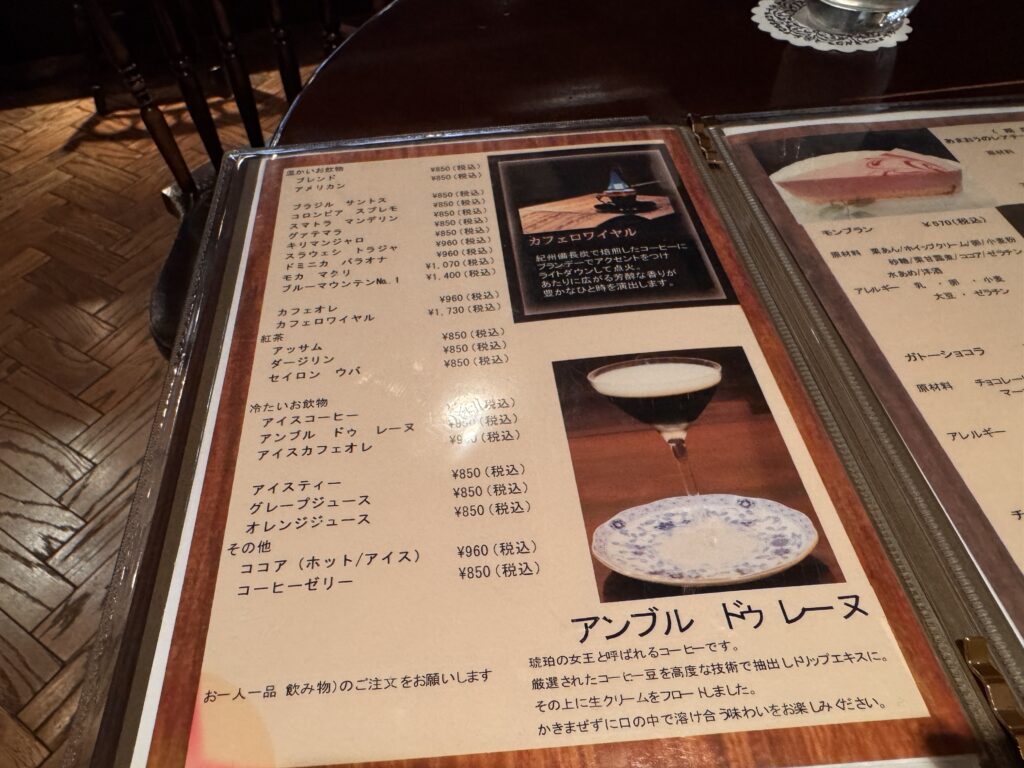 温かいお飲物
ブレンド ¥850(税込)
アメリカン ¥850(税込)
ブラジル サントス ¥850(税込)
コロンビア スプレモ ¥850(税込)
スマトラ マンデリン ¥850(税込)
グァテマラ ¥850(税込)
キリマンジャロ ¥850(税込)
スラウェシ トラジャ ¥960(税込)
ドミニカ バラオナ ¥960(税込)
モカ マタリ ¥1,070(税込)
ブルーマウンテン№1 ¥1,400(税込)
カフェオレ ¥960(税込)
カフェロワイヤル ¥1,730(税込)
紅茶
アッサム ¥850(税込)
ダージリン ¥850(税込)
セイロン ウバ ¥850(税込)
冷たいお飲物
アイスコーヒー (税込)
アンブル ドゥ レーヌ (税込)
アイスカフェオレ (税込)
アイスティー ¥850(税込)
グレープジュース ¥850(税込)
オレンジジュース ¥850(税込)
その他
ココア(ホット/アイス) ¥960(税込)
コーヒーゼリー ¥850(税込)
お一人一品 飲み物)のご注文をお願いします
カフェロワイヤル
紀州備長炭で焙煎したコーヒーに
ブランデーでアクセントをつけ
ライトダウンして点火。
あたりに広がる芳醇な香りが
豊かなひと時を演出します。
アンブル ドゥ レーヌ
琥珀の女王と呼ばれるコーヒーです。
厳選されたコーヒー豆を高度な技術で抽出しドリップエキスに。
その上に生クリームをフロートしました。
かきまぜずに口の中で溶け合う味わいをお楽しみください。
あまおうのレアチー
原材料
¥570(税込)
モンブラン
原材料 栗あん/ホイップクリーム/卵/小麦粉
砂糖/栗甘露煮/ココア/ゼラチン
水あめ/洋酒
アレルギー 乳・卵・小麦
大豆・ゼラチン
ガトーショコラ
原材料 チョコレー
マー
アレルギー